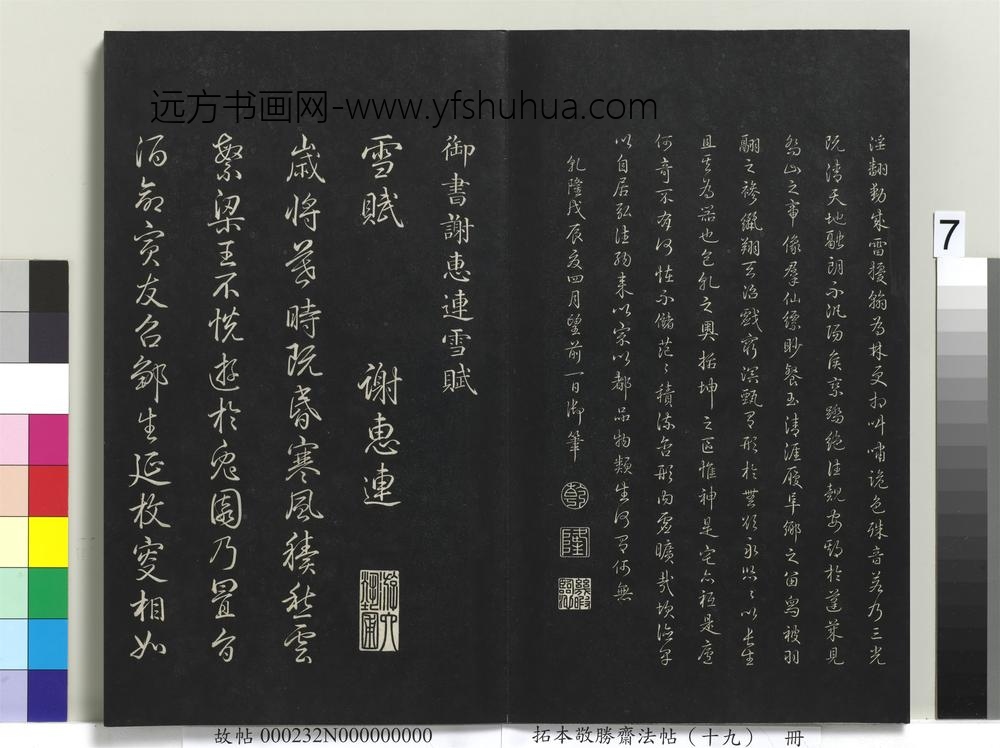 远方书画网-www.yfshuhua.com
淫翻動成雷擾翰為林更相叫嘯詭色殊音若乃三光
既清天地融朗不汎陽侯乘蹻絕往覿安期於蓬萊見
喬山之帝像羣仙縹眇餐玉清涯履阜鄉之留舄被羽
翮之襂纚翔天沼戲窮溟甄有形於無欲永悠々以長生
且其為器也包乾之奧括坤之區惟神是宅亦祗是廬
何奇不有何怪不儲茫々積流含形內虛曠哉坎德卑
以自居弘往納來以宗以都品物類生何有何無
乾隆戊辰夏四月望前一日御筆
乾
隆
御書謝惠連雪賦
雪賦 謝惠連
歲將暮時既昏寒風積愁雲
繁梁王不悅遊於兔園乃置旨
酒命賓友召鄒生延枚叟相如
7
故帖 000232N000000000
拓本敬勝齋法帖（十九） 冊